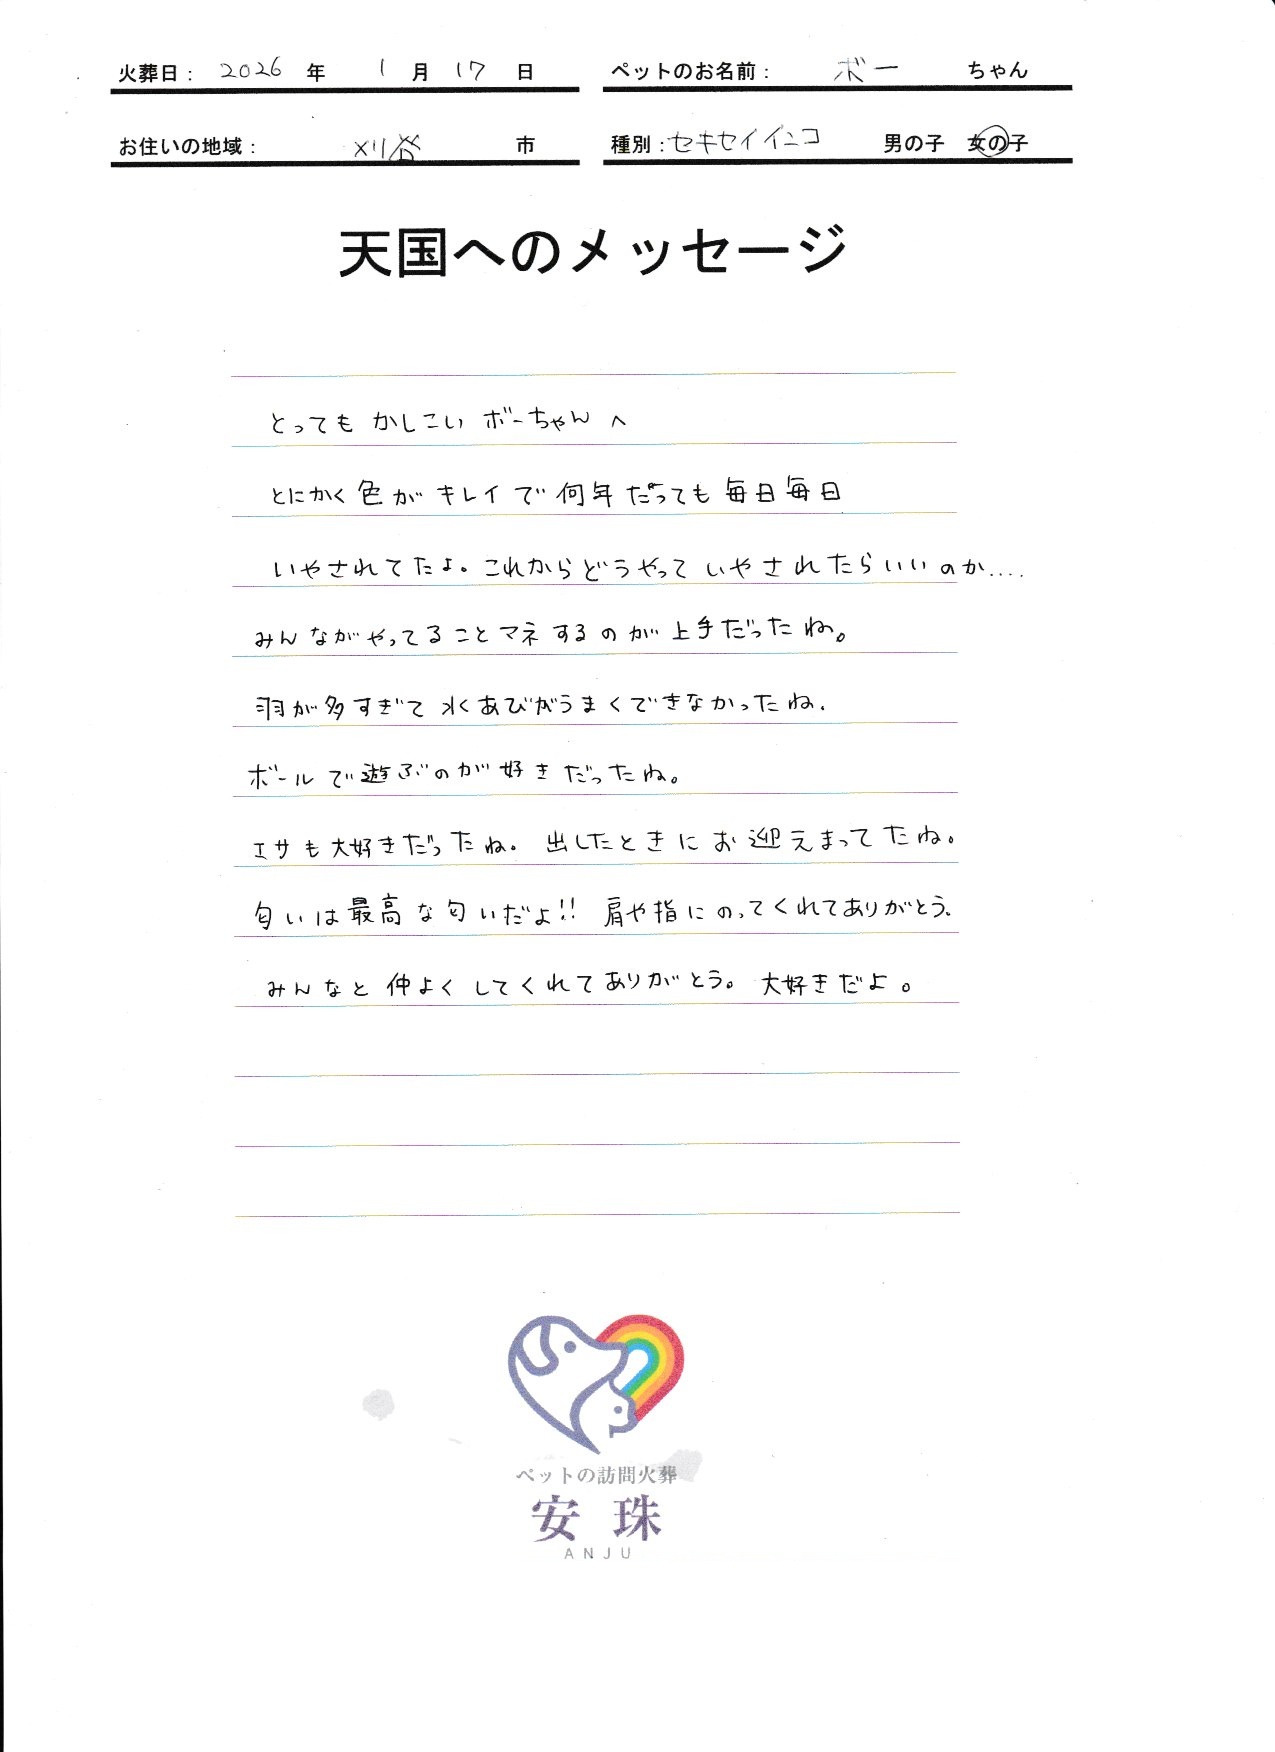 火葬日： 2026 年 1 月 17 日 ペットのお名前： ボー ちゃん
お住いの地域： 刈谷 市 種別：セキセイインコ 男の子 女の子
天国へのメッセージ
とっても かしこい ボーちゃん へ
とにかく 色が キレイで 何年だっても 毎日毎日
いやされてたよ。これからどうやって いやされたらいいのか....
みんながやってることマネするのが上手だったね。
羽が多すぎて 水あびがうまくできなかったね.
ボールで遊ぶのが好きだったね。
エサも大好きだったね。出したときにお迎えまってたね。
匂いは最高な匂いだよ!! 肩や指にのってくれてありがとう.
みんなと仲よくしてくれてありがとう。大好きだよ。
ペットの訪問火葬
安珠
ANJU